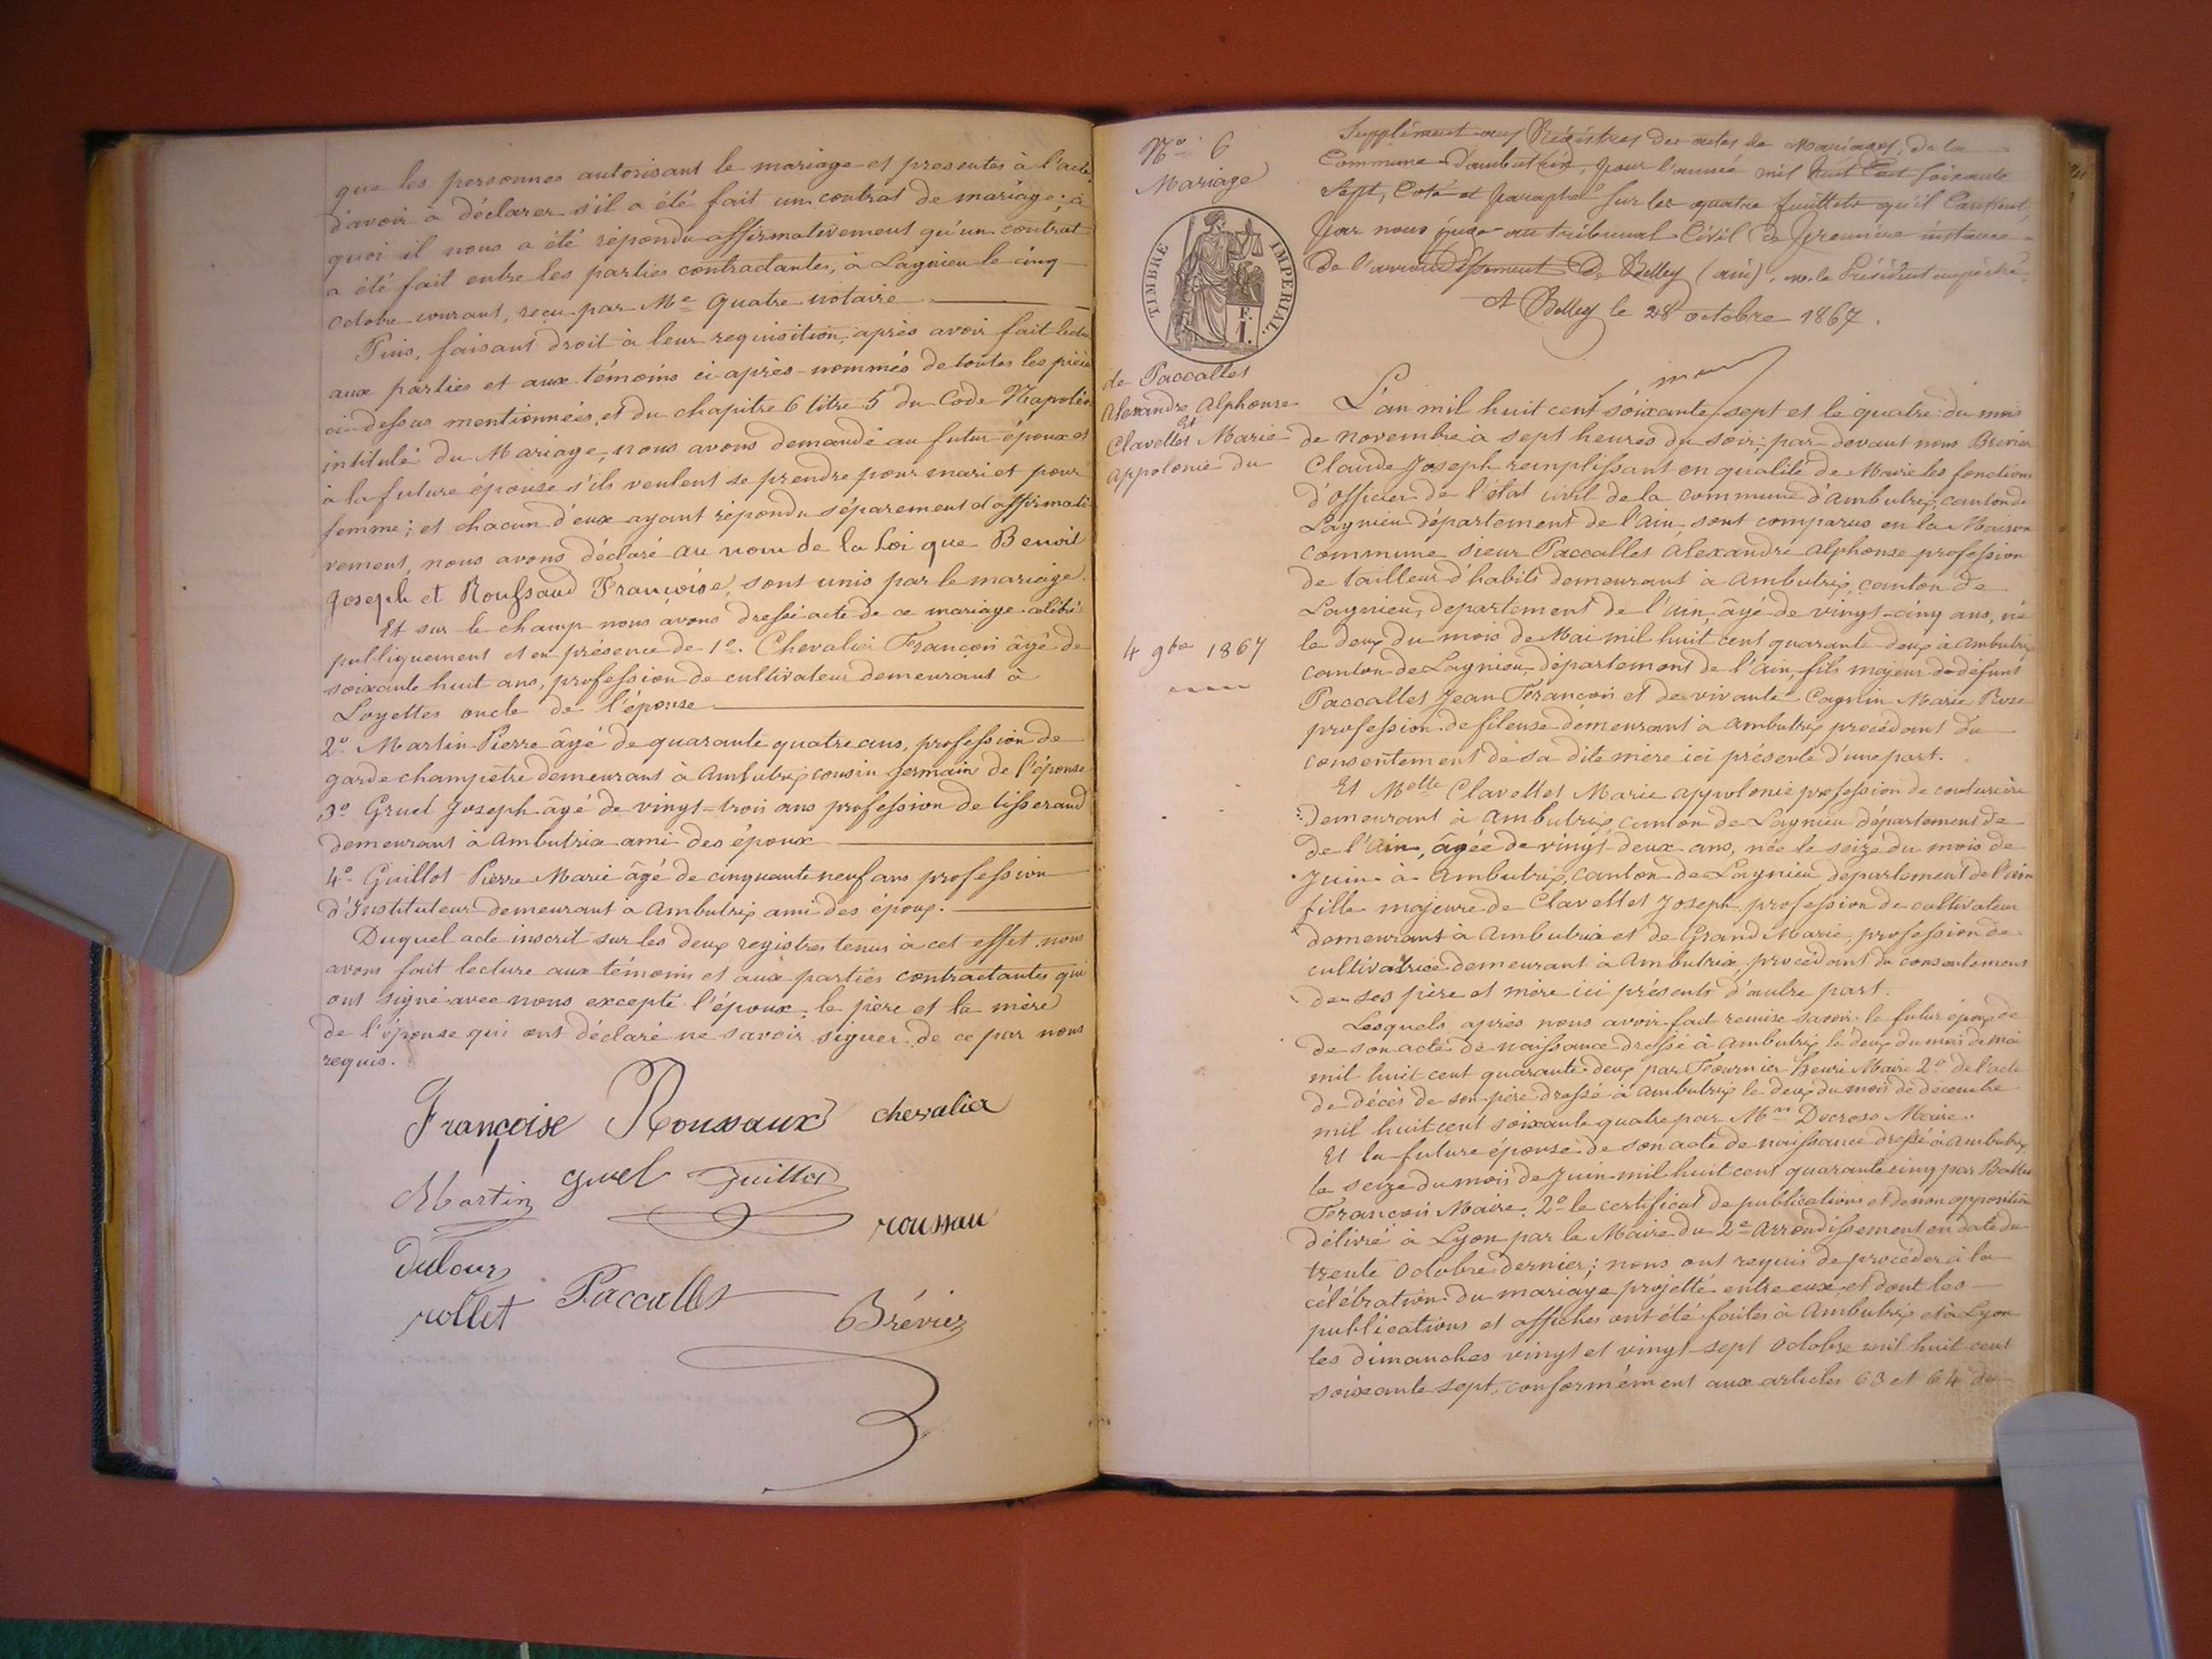 que les personnes autorisant le mariage et presentes à l'acte
d'avoir à déclarer s'il a été fait un contrat de mariage; à
quoi il nous a été répondu affirmativement qu'un contrat
a été fait entre les parties contractantes, à Lagnieu le cinq
octobre courant, reçu par Me Quatre notaire
Puis, faisant droit à leur requisition, après avoir fait lectu
aux parties et aux témoins ci-après-nommés de toutes les pièce
ci-dessus mentionnées, et du chapitre 6 titre 5 du Code Napoléon
intitulé du Mariage, nous avons demandé au futur époux et
à la future épouse s'ils veulent se prendre pour mari et pour
femme; et chacun d'eux ayant répondu séparement et affirmati
vement, nous avons déclaré au nom de la Loi que Benoit
Joseph et Roussaud Françoise, sont unis par le mariage.
Et sur le champ nous avons dressé acte de ce mariage célébré
publiquement et en présence de 1o. Chevalier François âgé de
soixante huit ans, profession de cultivateur demeurant à
Loyettes oncle de l'épouse
2o. Martin Pierre âgé de quarante quatre ans, profession de
garde champêtre demeurant à Ambutrix cousin germain de l'épouse
3o Gruel Joseph âgé de vingt-trois ans profession de tisserand
demeurant à Ambutrix ami des époux
4o. Guillot Pierre Marie âgé de cinquante neuf ans profession
d'Instituteur demeurant à Ambutrix ami des époux.
Duquel acte inscrit sur les deux registres tenus à cet effet, nous
avons fait lecture aux témoins et aux parties contractantes qui
ont signé avec nous excepté l'époux, le père et la mère
de l'épouse qui ont déclaré ne savoir signer de ce par nous
requis.
Françoise Roussaux chevalier
Martin gruel Guillot
roussau
Dulour
rollet Paccallet Brévier
No. 6
Mariage
TIMBRE IMPERIAL.
de Paccallet
Alexandre Alphonse
Et
Clavellet Marie
appolonie du
4 9bre 1867
Supplément aux Régistres des actes de Mariages, de la
Commune d'ambutrix, pour l'année mil huit Cent soixante
Sept, Coté et paraphé sur les quatre feuillets qu'il Contient,
par nous juge au tribunal Civil de première instance
de l'arrondissement De Belley (ain), m. le Président empêché.
A Belley le 28 octobre 1867.
L'an mil huit cent soixante sept et le quatre du mois
de novembre à sept heures du soir; par-devant nous Brévier
Claude Joseph remplissant en qualité de Maire les fonctions
d'officier de l'état civil de la commune d'Ambutrix, canton de
Lagnieu département de l'Ain, sont comparus en la Maison
commune sieur Paccallet Alexandre Alphonse profession
de tailleur d'habits demeurant à Ambutrix, canton de
Lagnieu, departement de l'Ain, âgé de vingt-cinq ans, né
le deux du mois de Mai mil huit cent quarante-deux à Ambutrix
canton de Lagnieu, département de l'Ain, fils majeur de défunt
Paccallet Jean François et de vivante Cagnin Marie Rose
profession de fileuse demeurant à Ambutrix procédant du
consentement de sa dite mère ici présente d'une part.
Et Melle Clavellet Marie appolonie profession de couturière
demeurant à Ambutrix canton de Lagnieu département de
De l'Ain, âgée de vingt-deux ans, née le seize du mois de
Juin à Ambutrix, canton de Lagnieu département de l'ain
fille majeure de Clavellet Joseph profession de cultivateur
demeurant à Ambutrix et de Grand Marie, profession de
cultivatrice demeurant à Ambutrix, procédant du consentement
de ses père et mère ici présents d'autre part.
Lesquels après nous avoir fait remise savoir: le futur époux de
de son acte de naissance dressé à Ambutrix le deux du mois de mai
mil huit cent quarante-deux par Fournier Henri Maire 2o. de l'acte
de décès de son père dressé à Ambutrix le deux du mois de décembre
mil huit cent soixante quatre par Mr Decroso Maire.
Et la future épouse de son acte de naissance dressé à Ambutrix
le seize du mois de Juin mil huit cent quarante cinq par
François Maire. 2o. le certificat de publications et de non opposition
délivré à Lyon par le Maire du 2e Arrondissement en date du
trente Octobre dernier; nous ont requis de procéder à la
célébration du mariage projetté entre eux et dont les
publications et affiches ont été faites à Ambutrix et à Lyon
les dimanches vingt et vingt-sept Octobre mil huit cent
soixante sept, conformément aux articles 63 et 64 du